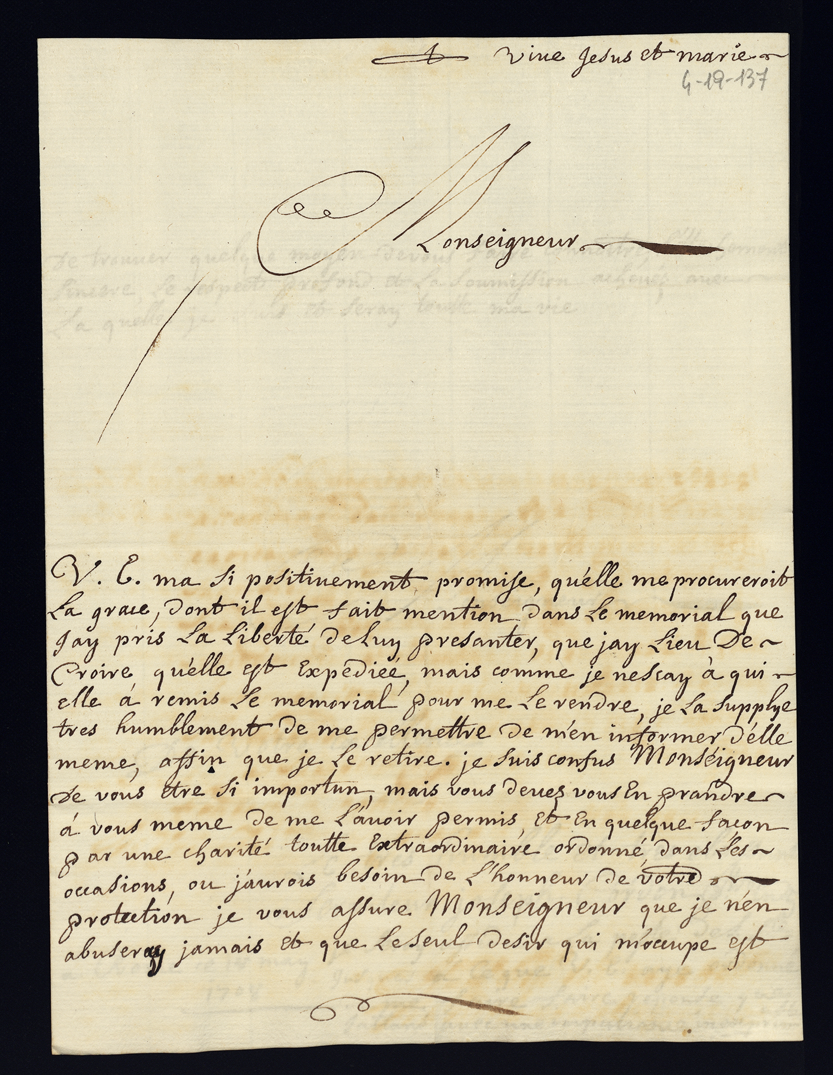 Vive Jesus et marie
4-19-137
Monseigneur
De trouver quelque moyen
sincere, le respect profond et la soumission
la quelle je suis et seray toute ma vie
V. E. ma si positivement promise, qu'elle me procureroit
La grace, dont il est fait mention dans le memorial que
Jay pris La Liberté de luy presanter, que jay Lieu De
Croire qu'elle est Expediéé, mais comme je nescay à qui
elle à remis Le memorial pour me Le rendre, je La supplye
tres humblement de me permettre de m'en informer d'elle
meme, affin que je Le retire. je suis confus Monseigneur
De vous être si importun, mais vous devez vous En prandre
á vous meme de me L'avoir permis, Et En quelque facon
par une charité toutte Extraordinaire ordonné dans Les
occasions, ou j'aurois besoin de L'honneur de votre
protection je vous assure Monseigneur que je n'en
abuseray jamais Et que Le seul desir qui m'occupe est